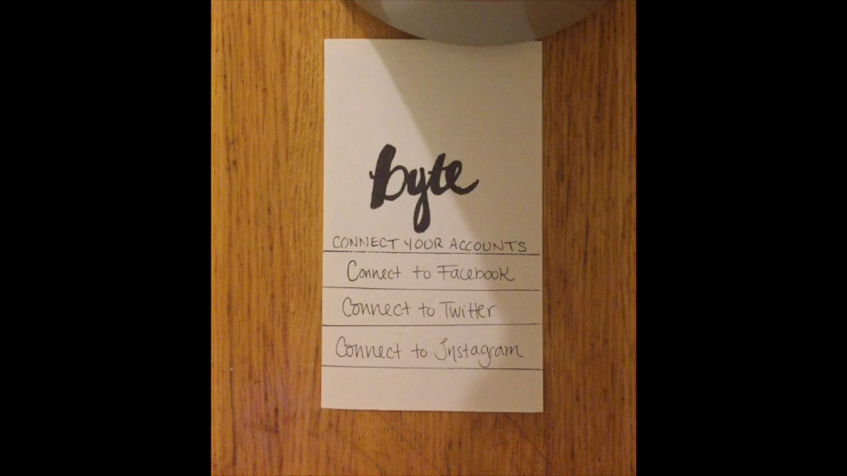 byte
CONNECT YOUR ACCOUNTS
Connect to Facebook
Connect to Twitter
Connect to Instagram